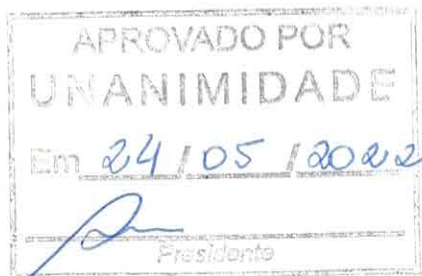 APROVADO POR
UNANIMIDADE
Em 24 / 05 / 2022
Presidente